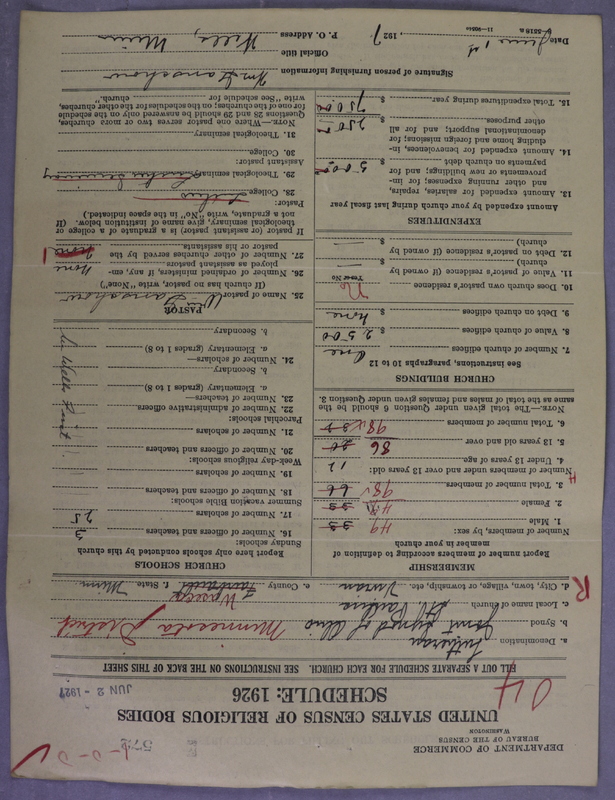 DEPARTMENT OF COMMERCE
BUREAU OF THE CENSUS
WASHINGTON
572
UNITED STATES CENSUS OF RELIGIOUS BODIES
SCHEDULE: 1926
JUN 2 - 1927
FILL OUT A SEPARATE SCHEDULE FOR EACH CHURCH. SEE INSTRUCTIONS ON THE BACK OF THIS SHEET
a. Denomination Lutheran
b. Synod Joint Synod of Ohio Minnesota District
c. Local name of church St. Paulus
d. City, town, village, or township, etc. e. County Faribault Waseca f. State Minn
MEMBERSHIP
Report number of members according to definition of member in your church
Number of members, by sex:
1. Male 33 49
2. Female 33 49
3. Total number of members 66 98
Number of members under and over 13 years old:
4. Under 13 years of age 12
5. 13 years old and over 86
6. Total number of members 98
NOTE.—The total given under Question 6 should be the same as the total of males and females given under Question 3.
CHURCH BUILDINGS
See instructions, paragraphs 10 to 12
7. Number of church edifices One
8. Value of church edifices $ 2500
9. Debt on church edifices $ none
10. Does church own pastor's residence No
Yes or No
11. Value of Pastor's residence (if owned by church) $
12. Debt on Pastor's residence (if owned by church) $
EXPENDITURES
Amount expended by your church during last fiscal year
13. Amount expended for salaries, repairs, and other running expenses; for improvements or new buildings; and for payments on church debt $ 500
14. Amount expended for benevolences, including home and foreign missions; for denominational support; and for all other purposes $ 250
15. Total expenditures during year $ 750
CHURCH SCHOOLS
Report here only schools conducted by this church
Sunday schools:
16. Number of officers and teachers 3
17. Number of scholars 25
Summer vacation Bible schools:
18. Number of officers and teachers
19. Number of scholars
Week-day religious schools:
20. Number of officers and teachers
21. Number of scholars
Parochial schools:
22. Number of administrative officers
23. Number of teachers—
a. Elementary (grades 1 to 8)
b. Secondary
24. Number of scholars—
a. Elementary (grades 1 to 8)
b. Secondary
PASTOR
25. Name of pastor Wm Langhow
(If church has no pastor, write "None")
26. Number of ordained ministers, if any, employed as assistant pastors none
27. Number of other churches served by the pastor or his assistants none 1
If pastor (or assistant pastor) is a graduate of a college or theological seminary, give name of institution below. (If not a graduate, write "No" in the space indicated.)
Pastor:
28. College
29. Theological seminary Luther Seminary
Assistant pastor:
30. College
31. Theological seminary
NOTE.—Where one pastor serves two or more churches, Questions 28 and 29 should be answered only on the schedule for one of the churches; on the schedule for the other churches, write "See schedule for church."
Signature of person furnishing information Wm Langhow
Official title
P. O. Address Wells, Minn
Date June 1st, 1927
8-5316 a